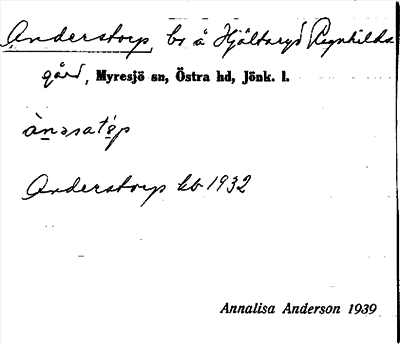 Anderstorp, bs å Hjältaryd Ragnhilds
gård, Myresjö sn, Östra hd, Jönk. l.
Anderstorp kb 1932
Annalisa Anderson 1939